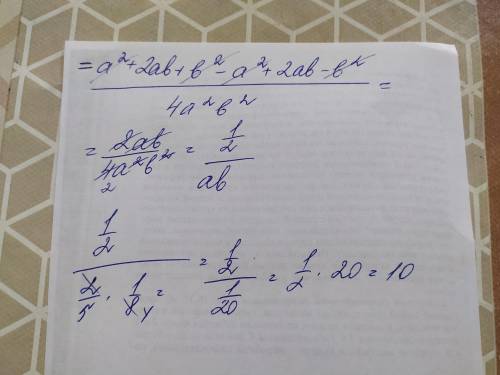 = a² + 2ab + b² - a² + 2ab - b² / 4a²b² =
= 2ab / 4a²b² 2 = 1/2 / ab
1/2 / 2/5 · 1/8 4 = = 1/2 / 1/20 = 1/2 · 20 = 10